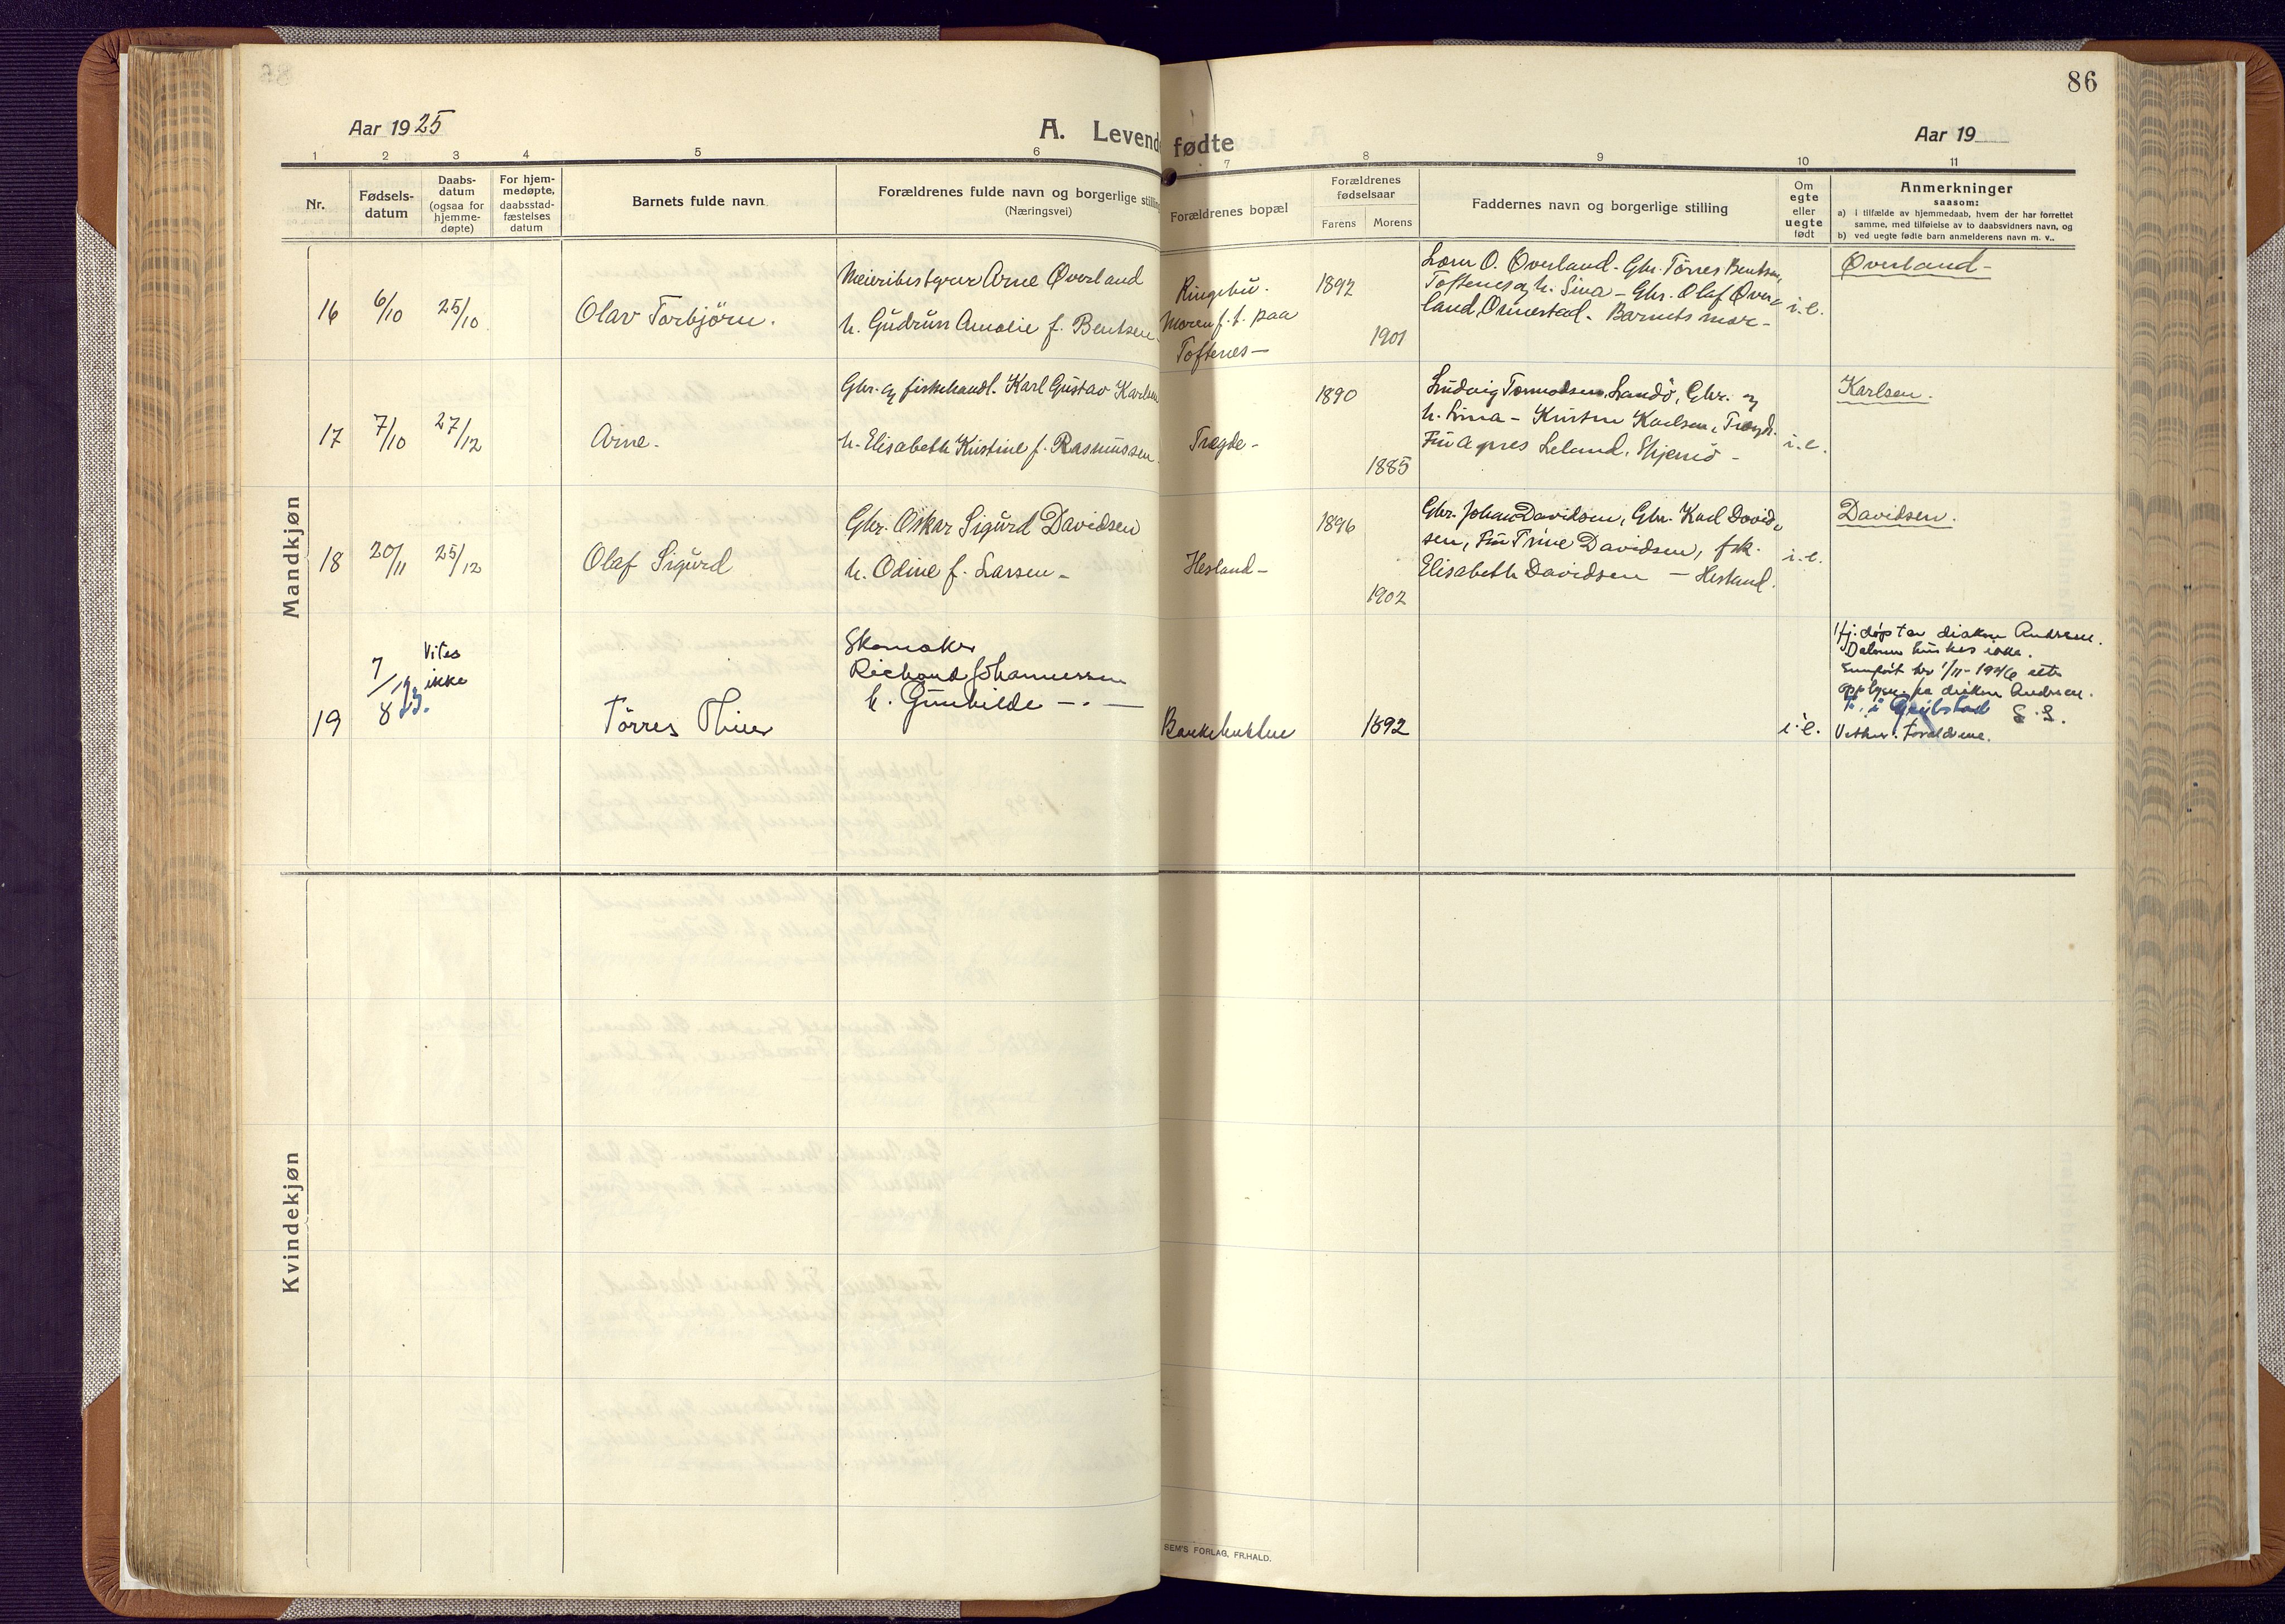 86
Aar 1925
A. Levende fødte
Aar 19
1 2 3 4 5 6 7 8 9 10 11
Nr.
Fødsels-
datum
Daabs-
datum
(ogsaa for
hjemme-
døpte)
For hjem-
medøpte,
daabsstad-
fæstelses
datum
Barnets fulde navn
Forældrenes fulde navn og borgerlige stilling
(Næringsvei)
Forældrenes bopæl
Forældrenes
fødselsaar
Farens Morens
Faddernes navn og borgerlige stilling
Om
egte
eller
uegte
født
Anmerkninger
saasom:
a) i tilfælde av hjemmedaab, hvem der har forrettet
samme, med tilføielse av to daabsvidners navn, og
b) ved uegte fødte barn anmelderens navn m. v..
Mandkjøn
16 6/10 25/10 Olav Torbjörn.
Meieribestyrer Arne Øverland
h. Gudrun Amalie f. Bentsen
Ringebu.
Moren f. t. paa
Toftenes—
1892
1901
Lærer O. Øverland. Gbr. Törres Bentsen,
Toftenes og h. Sina – Gbr. Olaf Øver-
land, Onnestad. Barnets mor –
i.e.
Øverland –
17 7/10 27/12 Arne.
Gbr. og fiskehandl. Karl Gustav Karlsen
h. Elisabeth Kristine f. Rasmussen
Trægde –
1890
1885
Ludvig Tormodsen, Landö, Gbr. og
h. – Karlsen, Trægd.
Fru Agnes Leland, Skjernö –
i.e.
Karlsen.
18 20/11 25/12 Olaf Sigurd
Gbr. Oskar Sigurd Davidsen
h. Odine f. Larsen –
Hesland –
1896
1902
Gbr. Johan Davidsen, Gbr. Karl David-
sen, Fru Trine Davidsen, frk.
Elisabeth Davidsen — Hesland.
i.e.
Davidsen.
19 7/8 23. Vites
ikke
Törres
Skomaker
Richard Johannessen
h. Gunhilde — . —
1892
i.e.
Hj. døpt av diakon Andresen.
Datum huskes ikke.
Innført her 1/11- 1946 etter
opplysn. fra diakon Andresen.
S. S.
Vitner: Foreldrene.
Kvindekjøn
SEM'S FORLAG, FR.HALD.